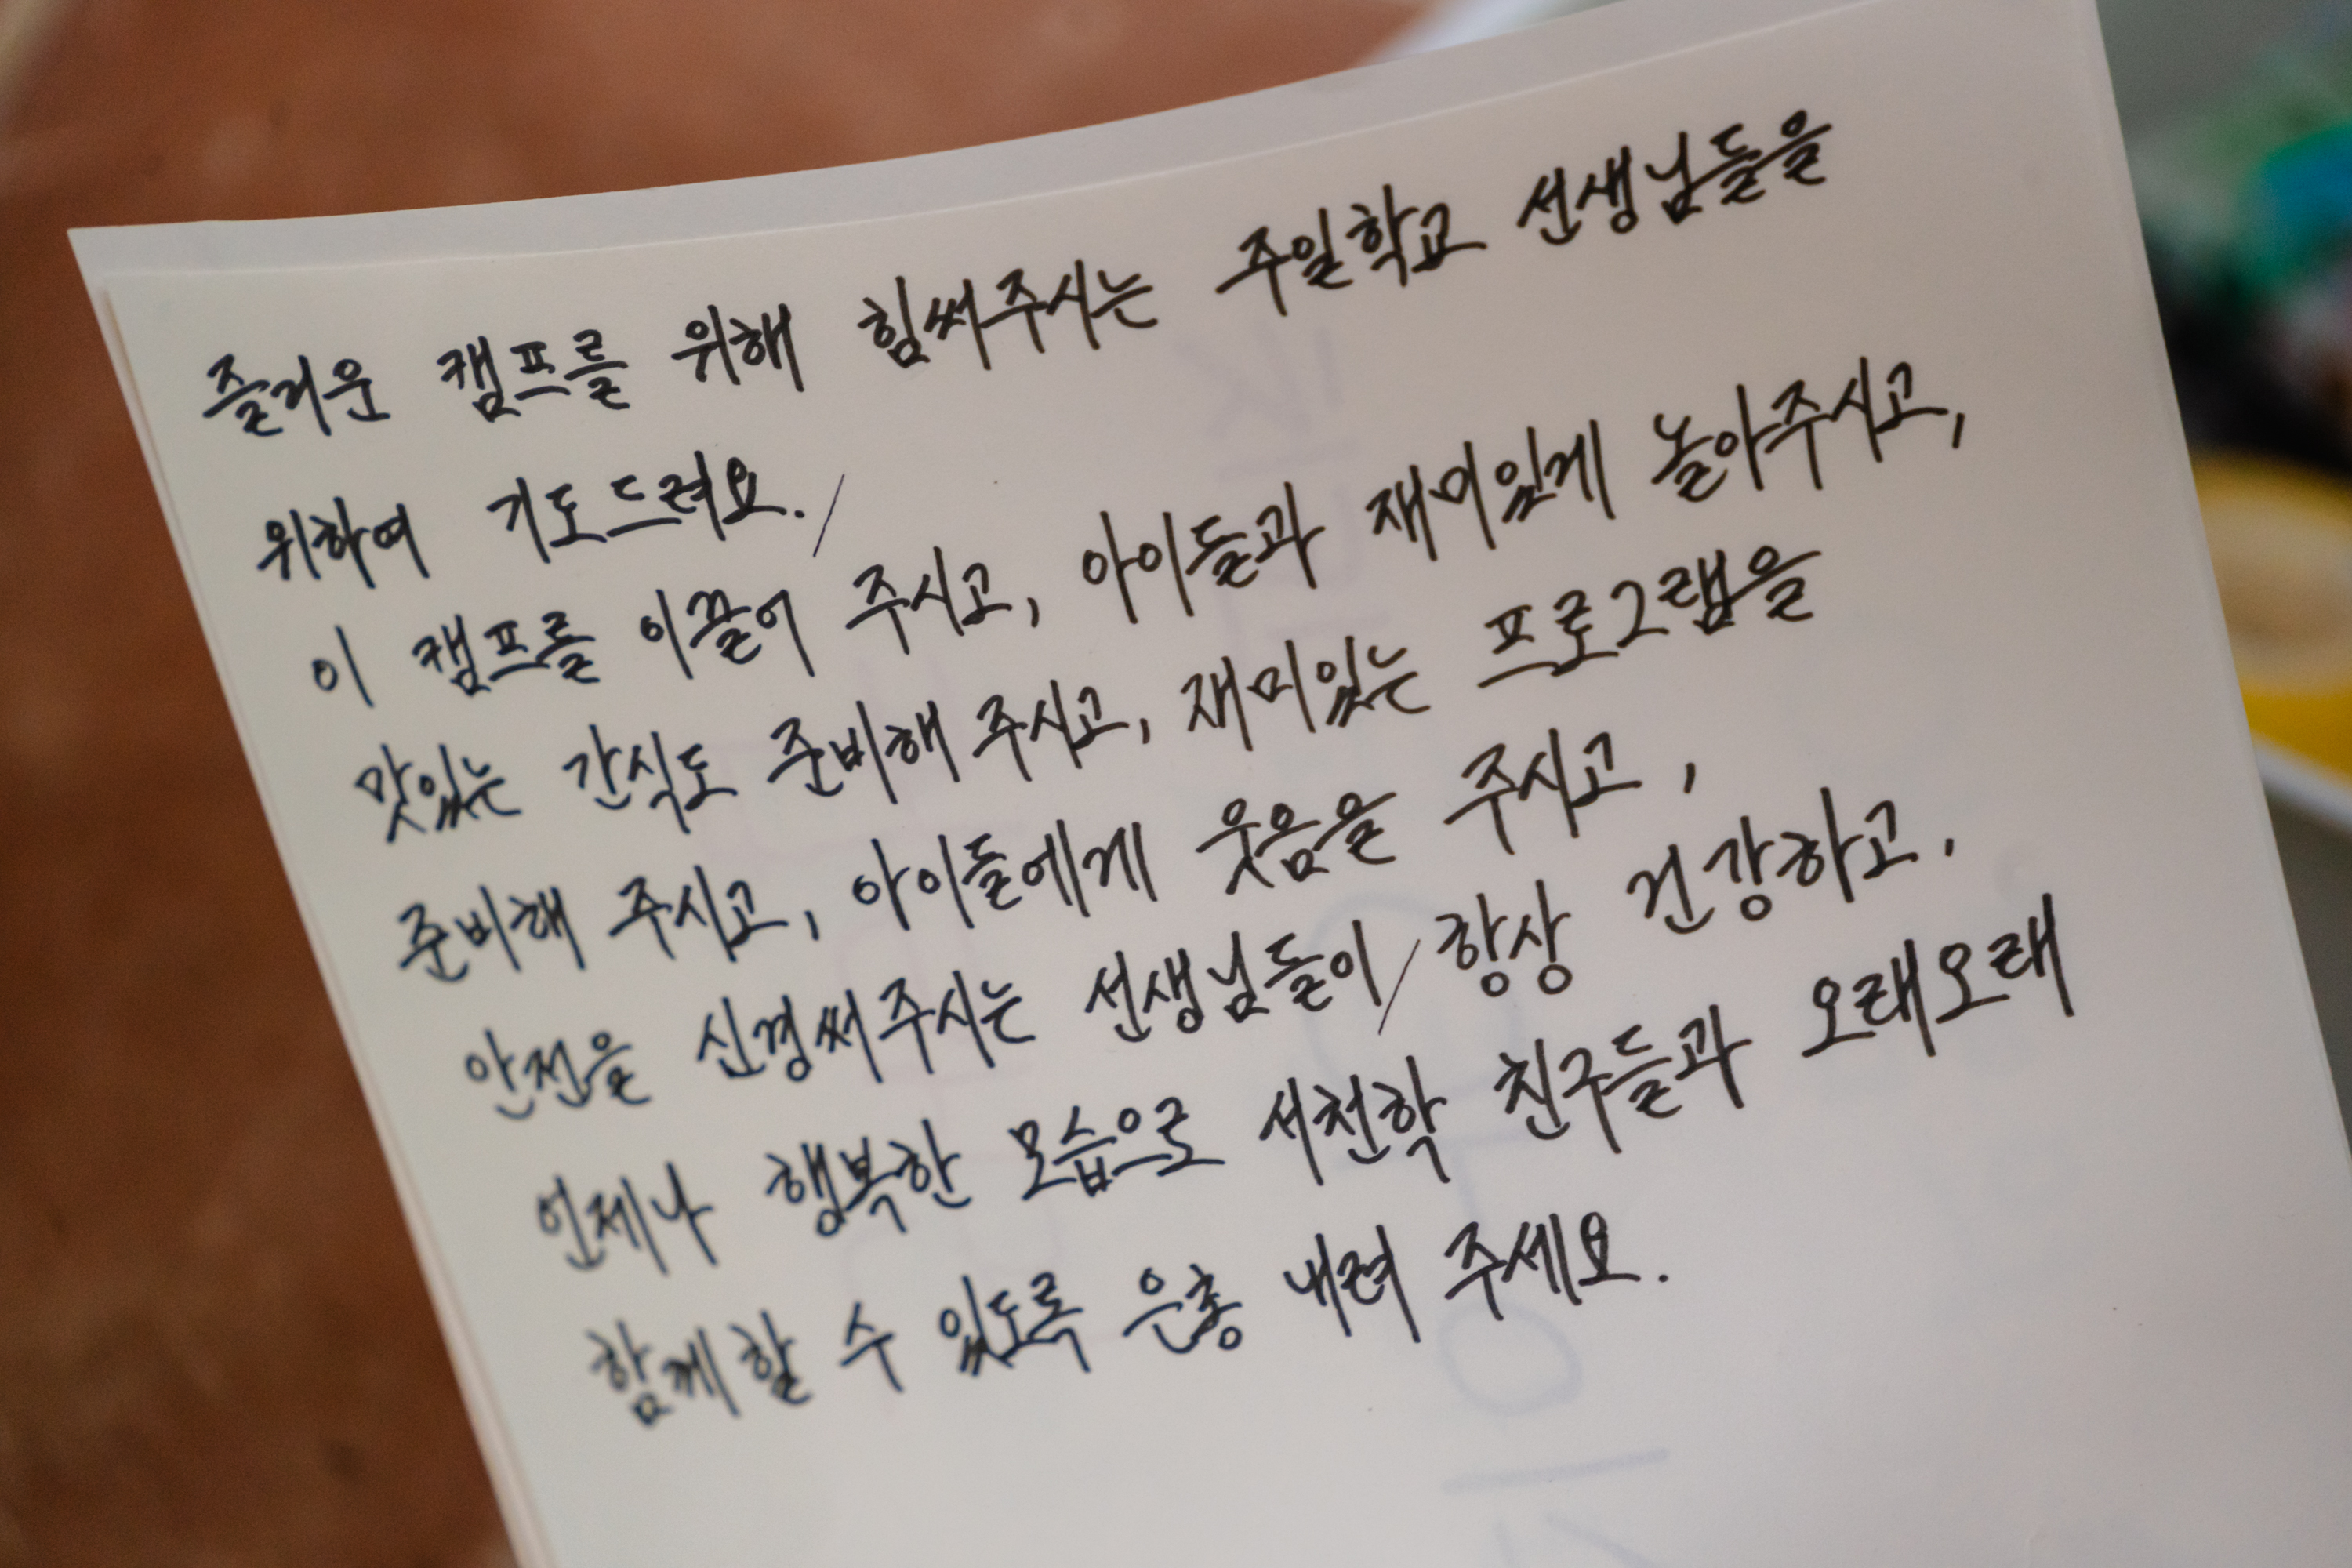 즐거운 캠프를 위해 힘써주시는 주일학교 선생님들을
위하여 기도드려요. /
이 캠프를 이끌어 주시고, 아이들과 재미있게 놀아주시고,
맛있는 간식도 준비해 주시고, 재미있는 프로그램을
준비해 주시고, 아이들에게 웃음을 주시고,
안전을 신경써주시는 선생님들이 / 항상 건강하고.
언제나 행복한 모습으로 서천학 친구들과 오래오래
함께 할 수 있도록 은총 내려 주세요.